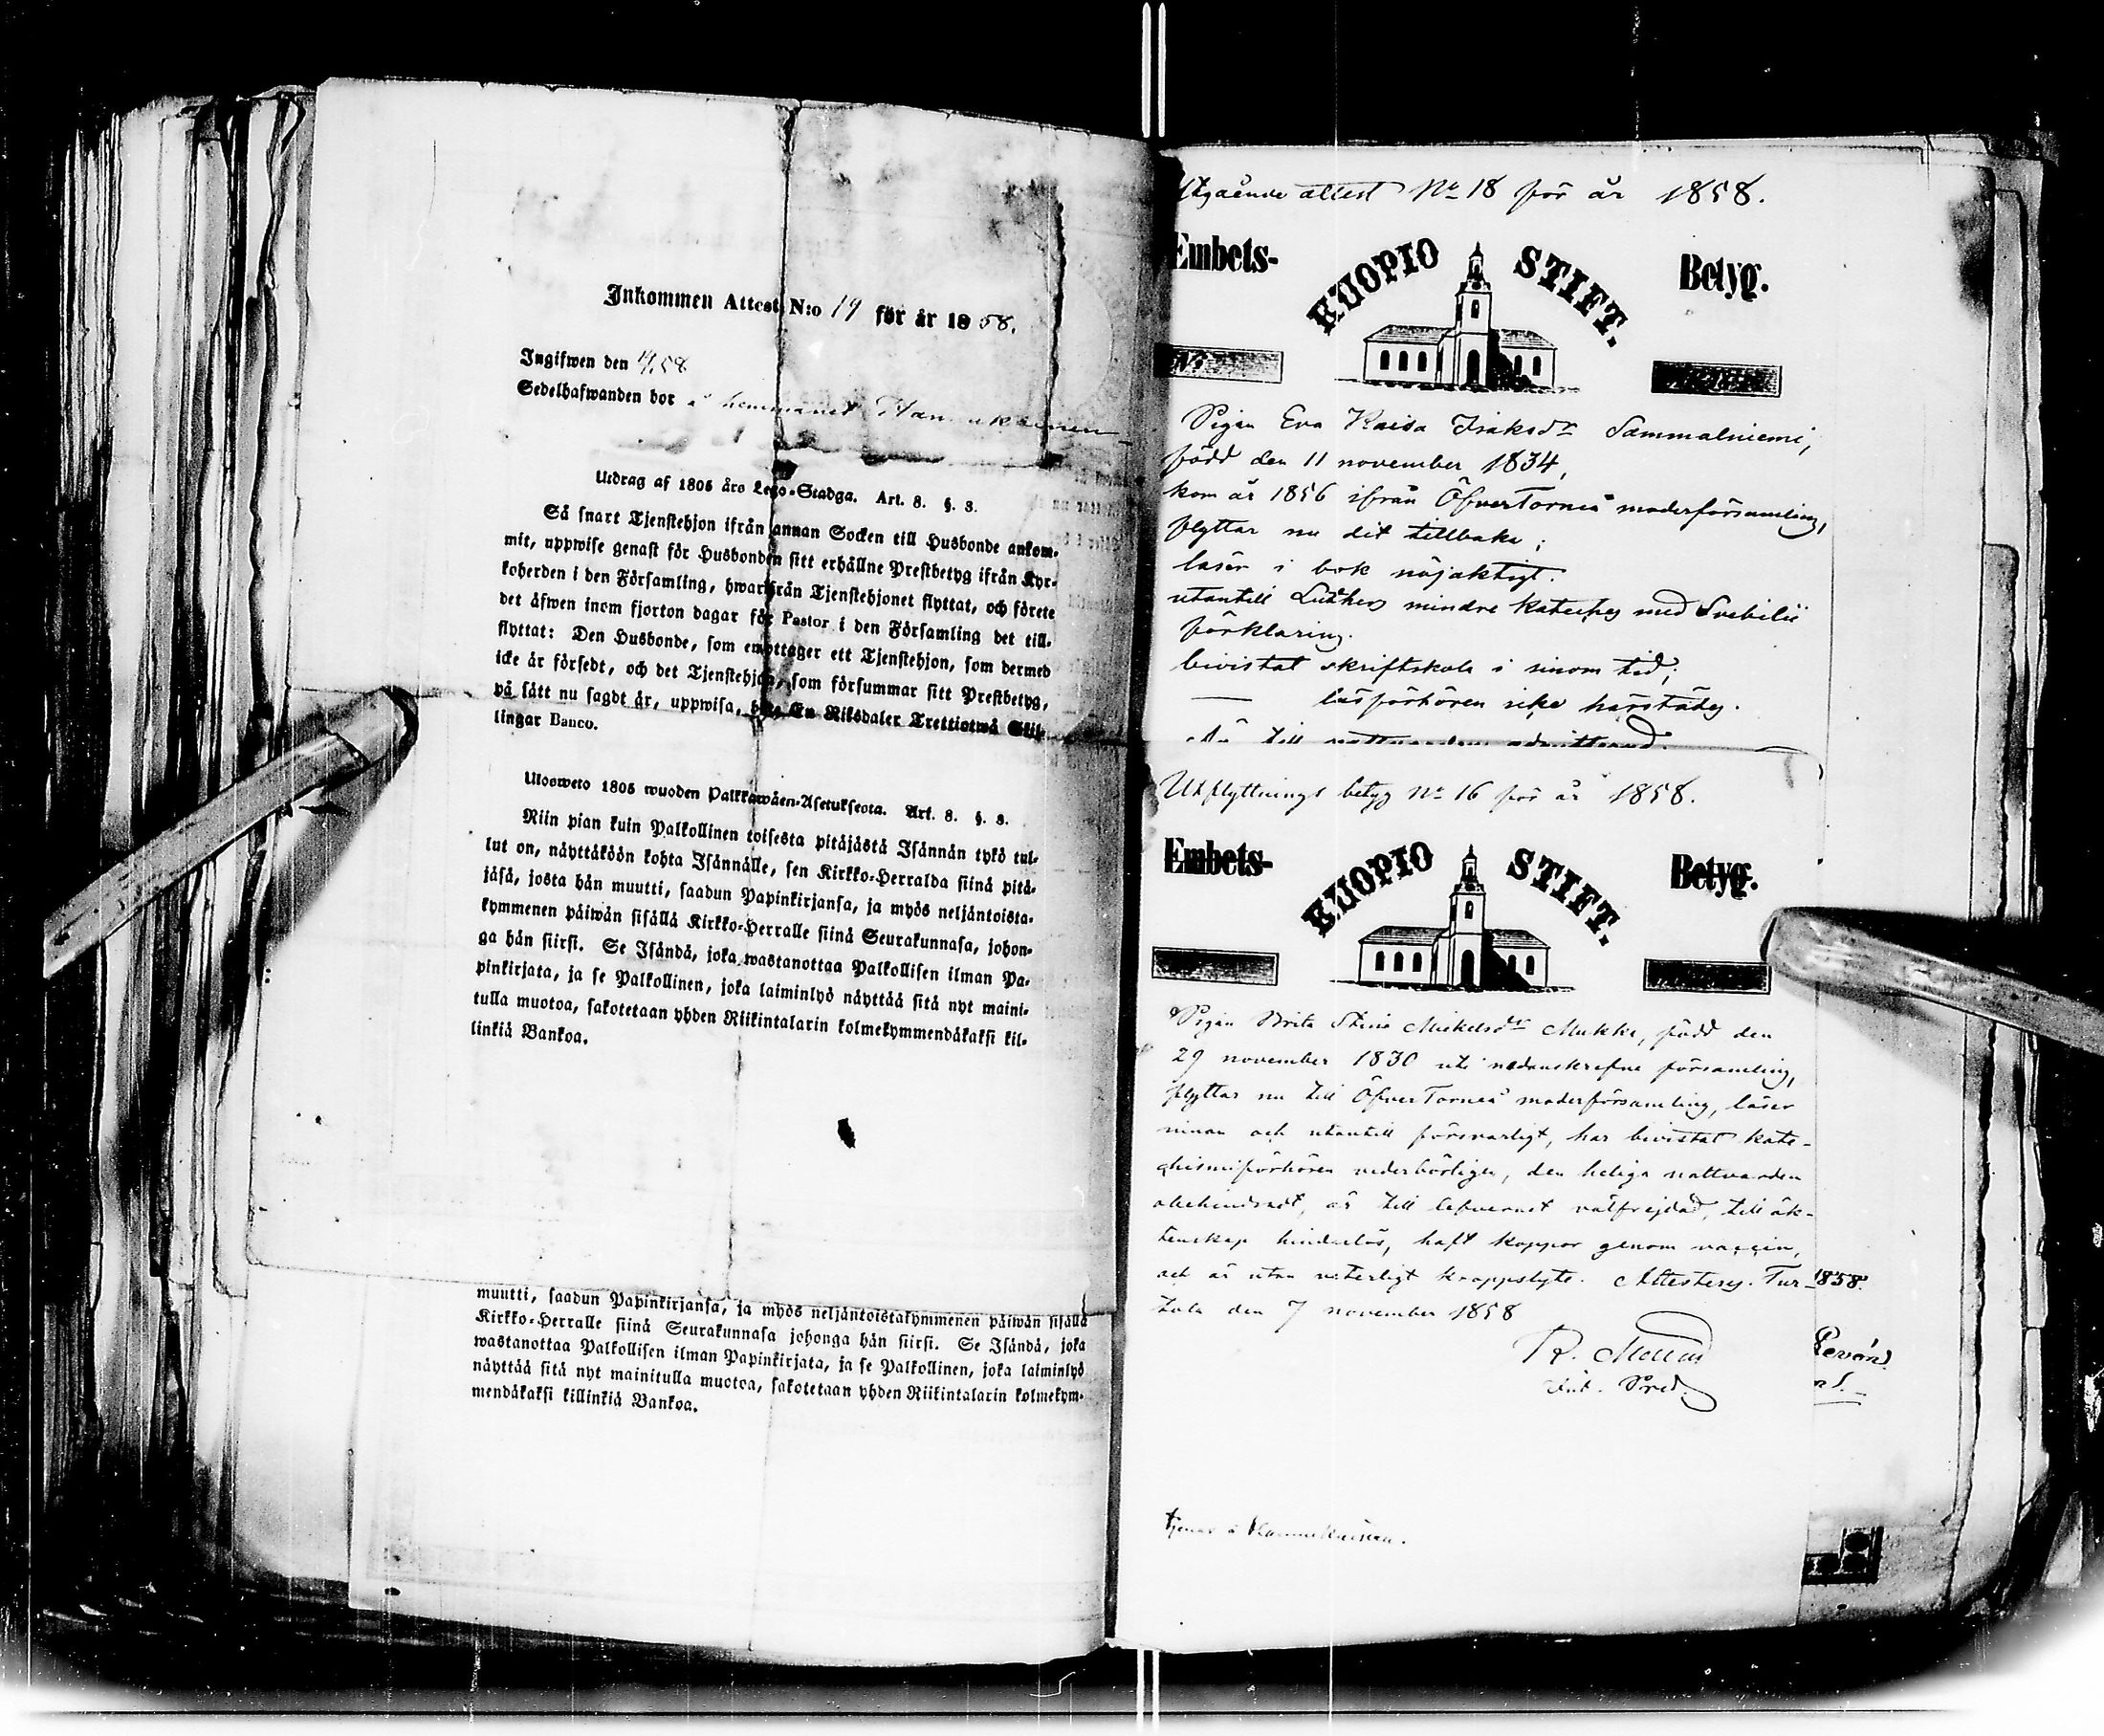 Inkommen Attest N:o 19 för år 1858.
Ingifwen den
Sedelhafwanden bor å hemmanet
Utdrag af 1805 års Lego-Stadga. Art. 8. §. 3.
Så snart Tjenstehjon ifrån annan Socken till Husbonde ankom-
mit, uppwise genast för Husbonden sitt erhållne Prestbetyg ifrån Kyr-
koherden i den Församling, hwarifrån Tjenstehjonet flyttat, och förete
det äfwen inom fjorton dagar för Pastor i den Församling det till-
flyttat: Den Husbonde, som emottager ett Tjenstehjon, som dermed
icke är försedt, och det Tjenstehjon, som försummar sitt Prestbetyg,
på sätt nu sagdt är, uppwisa, böte En Riksdaler Trettiotwå Skil-
lingar Banco.
Ulosweto 1805 wuoden Palkkawäen-Asetuksesta. Art. 8. §. 3.
Niin pian kuin Palkollinen toisesta pitäjästä Isännän tykö tul-
lut on, näyttäköön kohta Isännälle, sen Kirkko-Herralda siinä pitä-
jäsä, josta hän muutti, saadun Papinkirjansa, ja myös neljäntoista-
kymmenen päiwän sisällä Kirkko-Herralle siinä Seurakunnasa, johon-
ga hän siirsi. Se Isändä, joka wastanottaa Palkollisen ilman Pa-
pinkirjata, ja se Palkollinen, joka laiminlyö näyttää sitä nyt maini-
tulla muotoa, sakotetaan yhden Riikintalarin kolmekymmendäkaksi kil-
linkiä Bankoa.
muutti, saadun Papinkirjansa, ja myös neljäntoistakymmenen päiwän sisällä
Kirkko-Herralle siinä Seurakunnasa johonga hän siirsi. Se Isändä, joka
wastanottaa Palkollisen ilman Papinkirjata, ja se Palkollinen, joka laiminlyö
näyttää sitä nyt mainitulla muotoa, sakotetaan yhden Riikintalarin kolmekym-
mendäkaksi killinkiä Bankoa.
Utgående attest No 18 för år 1858.
Embets- KUOPIO STIFT. Betyg.
Pigan Eva Kaisa Isaksdr Sammalniemi,
född den 11 november 1834,
kom år 1856 ifrån ÖfverTorneå moderförsamling,
flyttar nu dit tillbaka;
läser i bok nöjaktigt.
utantill Luthers mindre kateches med Svebilii
förklaring.
bivistat skriftskola i sinom tid;
— läsförhören icke härstädes.
Är till nattvarden admitterad.
Utflyttnings betyg No 16 för år 1858.
Embets- KUOPIO STIFT. Betyg.
Pigan Brita Stina Mickelsdr Mukka, född den
29 november 1830 uti nedanskrefne församling,
flyttar nu till ÖfverTorneå moderförsamling, läser
innan och utantill försvarligt, har bivistat kate-
chismiförhören vederbörligen, den heliga nattvarden
obehindradt, är till lefvernet välfrejdad, till äk-
tenskap hinderlös, haft koppor genom vaccin,
och är utan veterligt kroppslyte. Attesteras. Tur- 1858.
tola den 7 november 1858
R.
Pred.
tjenar å